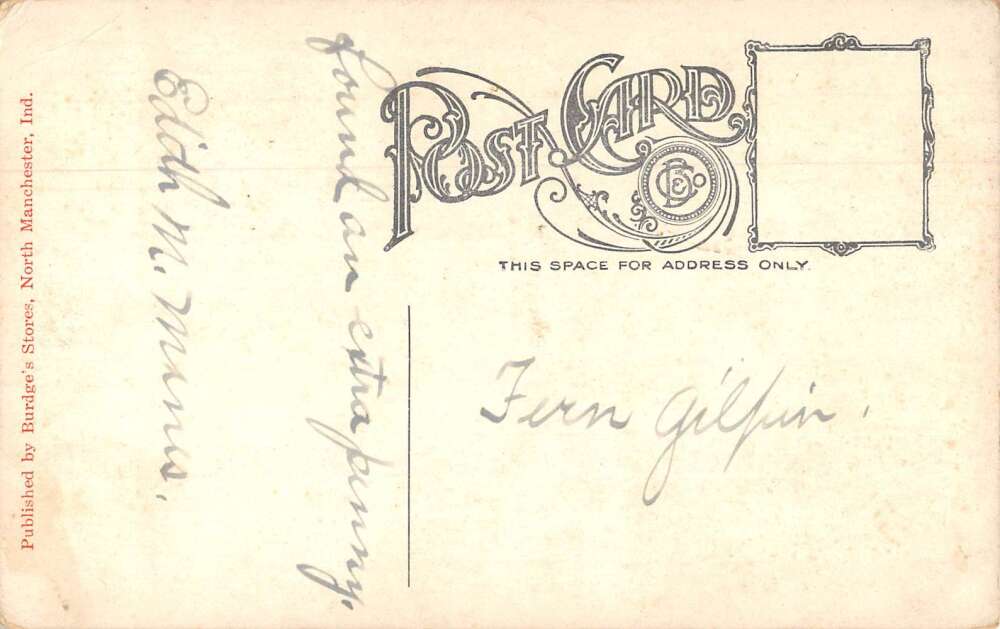 Published by Burdge's Stores, North Manchester, Ind.
Found an extra penny.
Edith M.
POST CARD
THIS SPACE FOR ADDRESS ONLY.
Fern Gilpin.